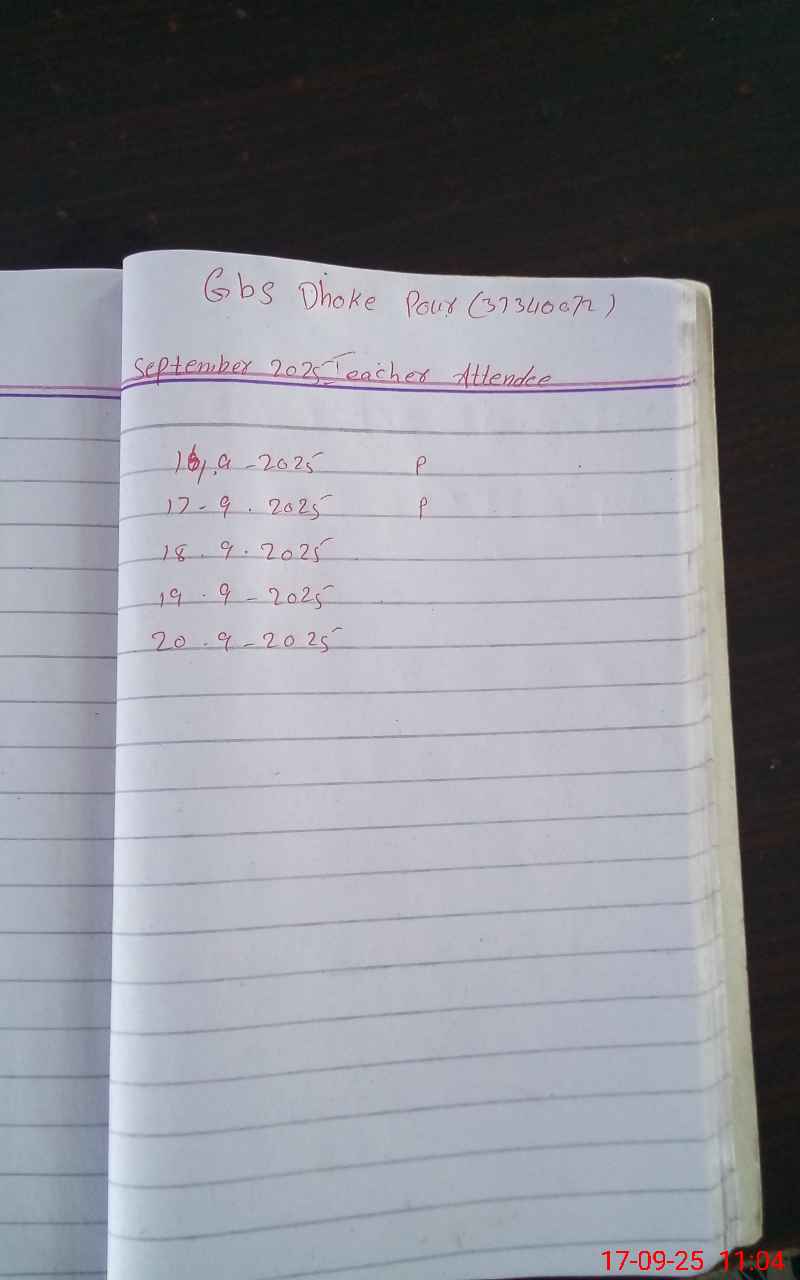 Gbs Dhoke Pour (37340072)
September 2025 Teacher Attendee
16.9-2025 P
17-9.2025 P
18.9.2025
19.9-2025
20.9-2025
17-09-25 11:04